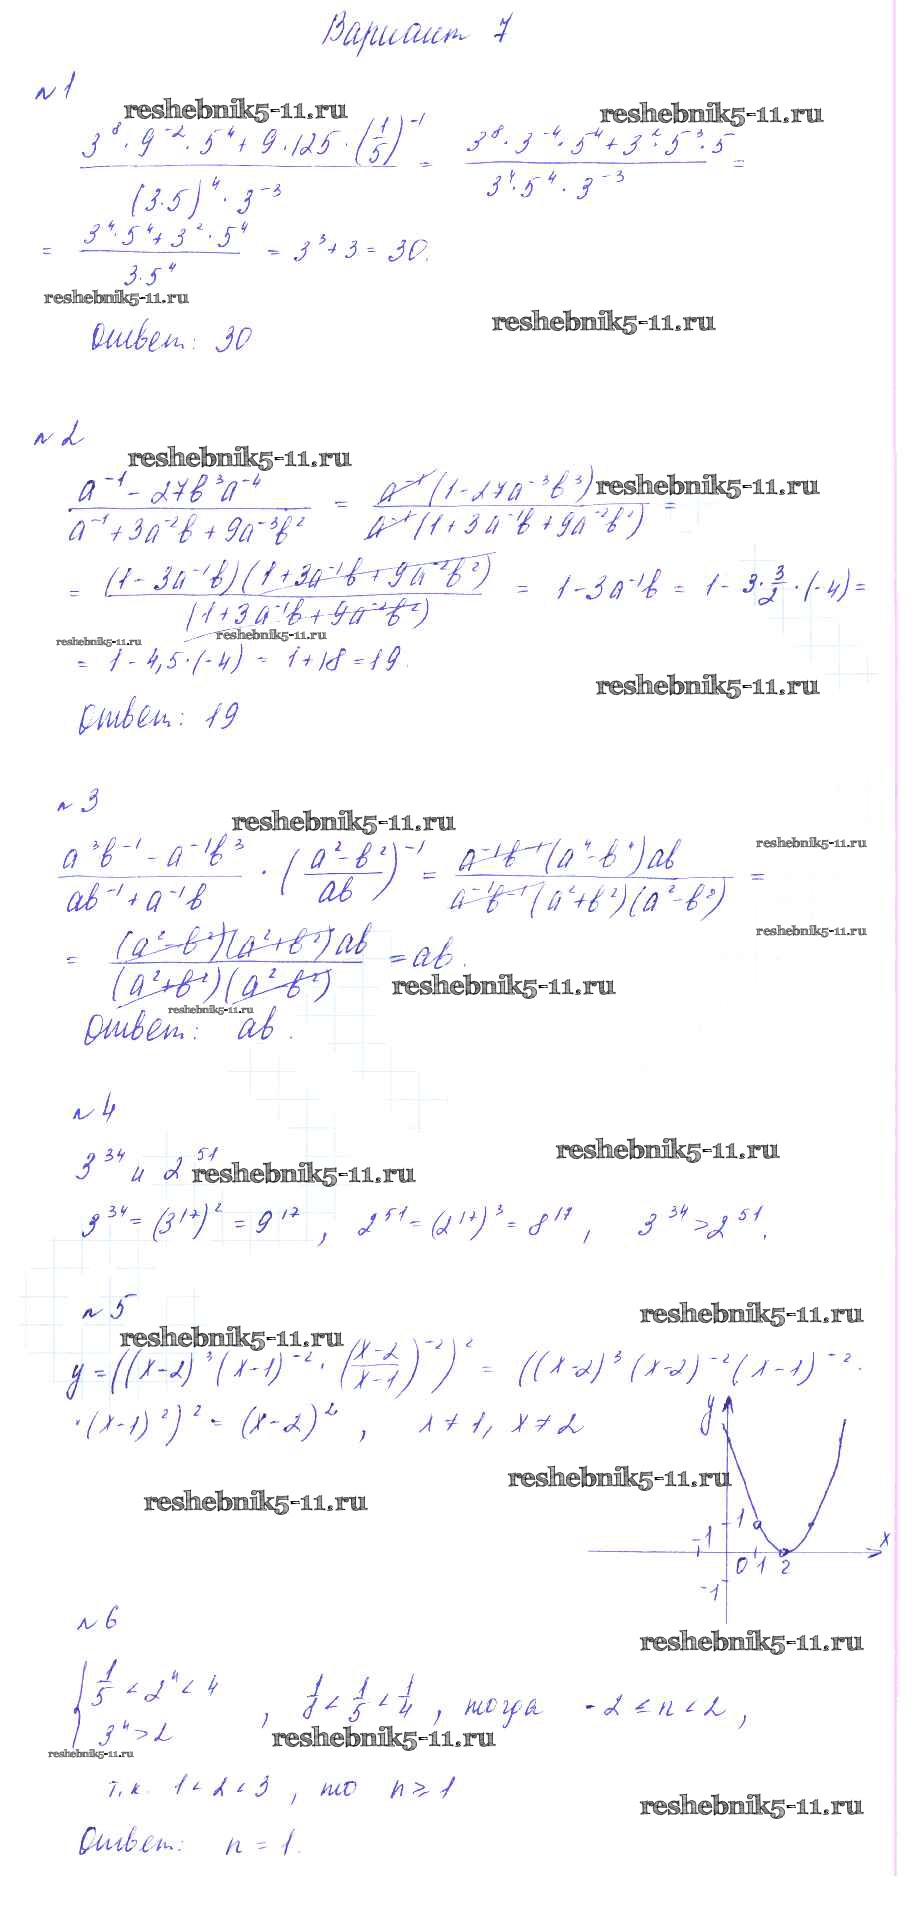 Вариант 7
№1
reshebnik5-11.ru reshebnik5-11.ru
(3^8·9^-2·5^4+9·125·(1/5)^-1)/((3·5)^4·3^-3) = (3^8·3^-4·5^4+3^2·5^3·5)/(3^4·5^4·3^-3) =
= (3^4·5^4+3^2·5^4)/(3·5^4) = 3^3+3=30.
reshebnik5-11.ru
reshebnik5-11.ru
Ответ: 30
№2
reshebnik5-11.ru
reshebnik5-11.ru
(a^-1-27b^3a^-4)/(a^-1+3a^-2b+9a^-3b^2) = (a^-1(1-27a^-3b^3))/(a^-1(1+3a^-1b+9a^-2b^2)) =
= ((1-3a^-1b)(1+3a^-1b+9a^-2b^2))/((1+3a^-1b+9a^-2b^2)) = 1-3a^-1b = 1-3·3/2·(-4)=
reshebnik5-11.ru reshebnik5-11.ru
= 1-4,5·(-4) = 1+18=19.
reshebnik5-11.ru
Ответ: 19
№3
reshebnik5-11.ru
reshebnik5-11.ru
(a^3b^-1-a^-1b^3)/(ab^-1+a^-1b)·((a^2-b^2)/ab)^-1 = (a^-1b^-1(a^4-b^4)ab)/(a^-1b^-1(a^2+b^2)(a^2-b^2)) =
reshebnik5-11.ru
= ((a^2-b^2)(a^2+b^2)ab)/((a^2+b^2)(a^2-b^2)) =ab.
reshebnik5-11.ru
reshebnik5-11.ru
Ответ: ab.
№4
reshebnik5-11.ru
3^34 и 2^51 reshebnik5-11.ru
3^34=(3^17)^2=9^17, 2^51=(2^17)^3=8^17, 3^34>2^51.
№5
reshebnik5-11.ru
reshebnik5-11.ru
y=((x-2)^3(x-1)^-2·((x-2)/(x-1))^-2)^2 = ((x-2)^3(x-2)^-2(x-1)^-2·
·(x-1)^2)^2=(x-2)^2, x≠1, x≠2
y
reshebnik5-11.ru
reshebnik5-11.ru
1
-1 x
0 1 2
-1
№6
reshebnik5-11.ru
{1/5<2^n<4
3^n>2
, 1/8<1/5<1/4, тогда -2≤n<2,
reshebnik5-11.ru
reshebnik5-11.ru
т.к. 1<2<3, то n≥1
reshebnik5-11.ru
Ответ: n=1.